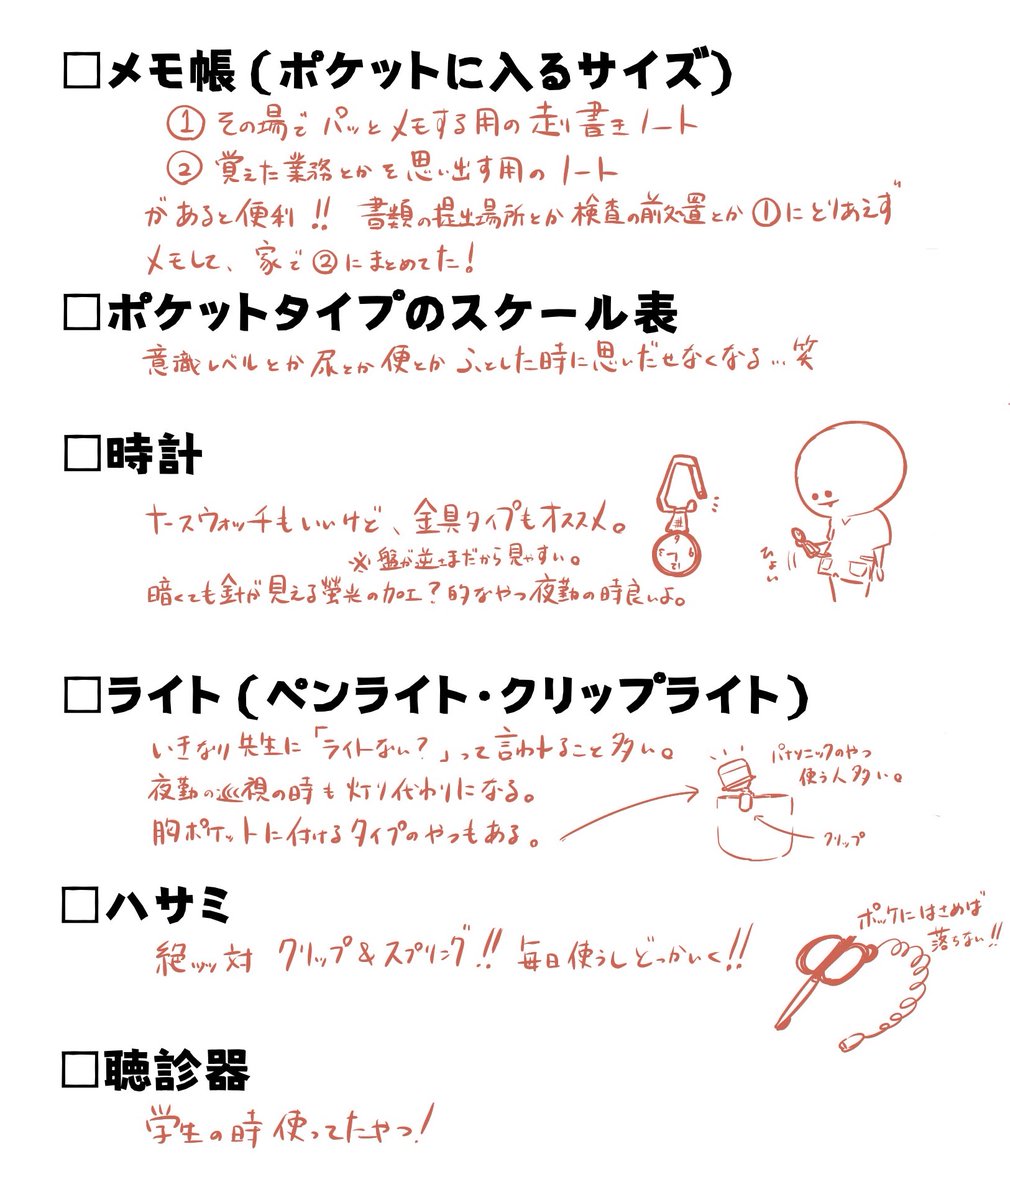 □メモ帳(ポケットに入るサイズ)
①その場でパッとメモする用の走り書きノート
②覚えた業務とかを思い出す用のノート
があると便利!! 書類の提出場所とか検査の前処置とか①にとりあえず
メモして、家で②にまとめてた!
□ポケットタイプのスケール表
意識レベルとか尿とか便とかふとした時に思いだせなくなる…笑
□時計
ナースウォッチもいいけど、金具タイプもオススメ。
※盤が逆さまだから見やすい。
暗くても針が見える螢光の加工?的なやつ夜勤の時良いよ。
ひょい
□ライト(ペンライト・クリップライト)
いきなり先生に「ライトない?」って言われること多い。
夜勤の巡視の時も灯り代わりになる。
胸ポケットに付けるタイプのやつもある。
パナソニックのやつ
使う人多い。
クリップ
□ハサミ
絶ッッ対 クリップ&スプリング!! 毎日使うしどっかいく!!
ポッケにはさめば
落ちない!!
□聴診器
学生の時使ってたやつ!